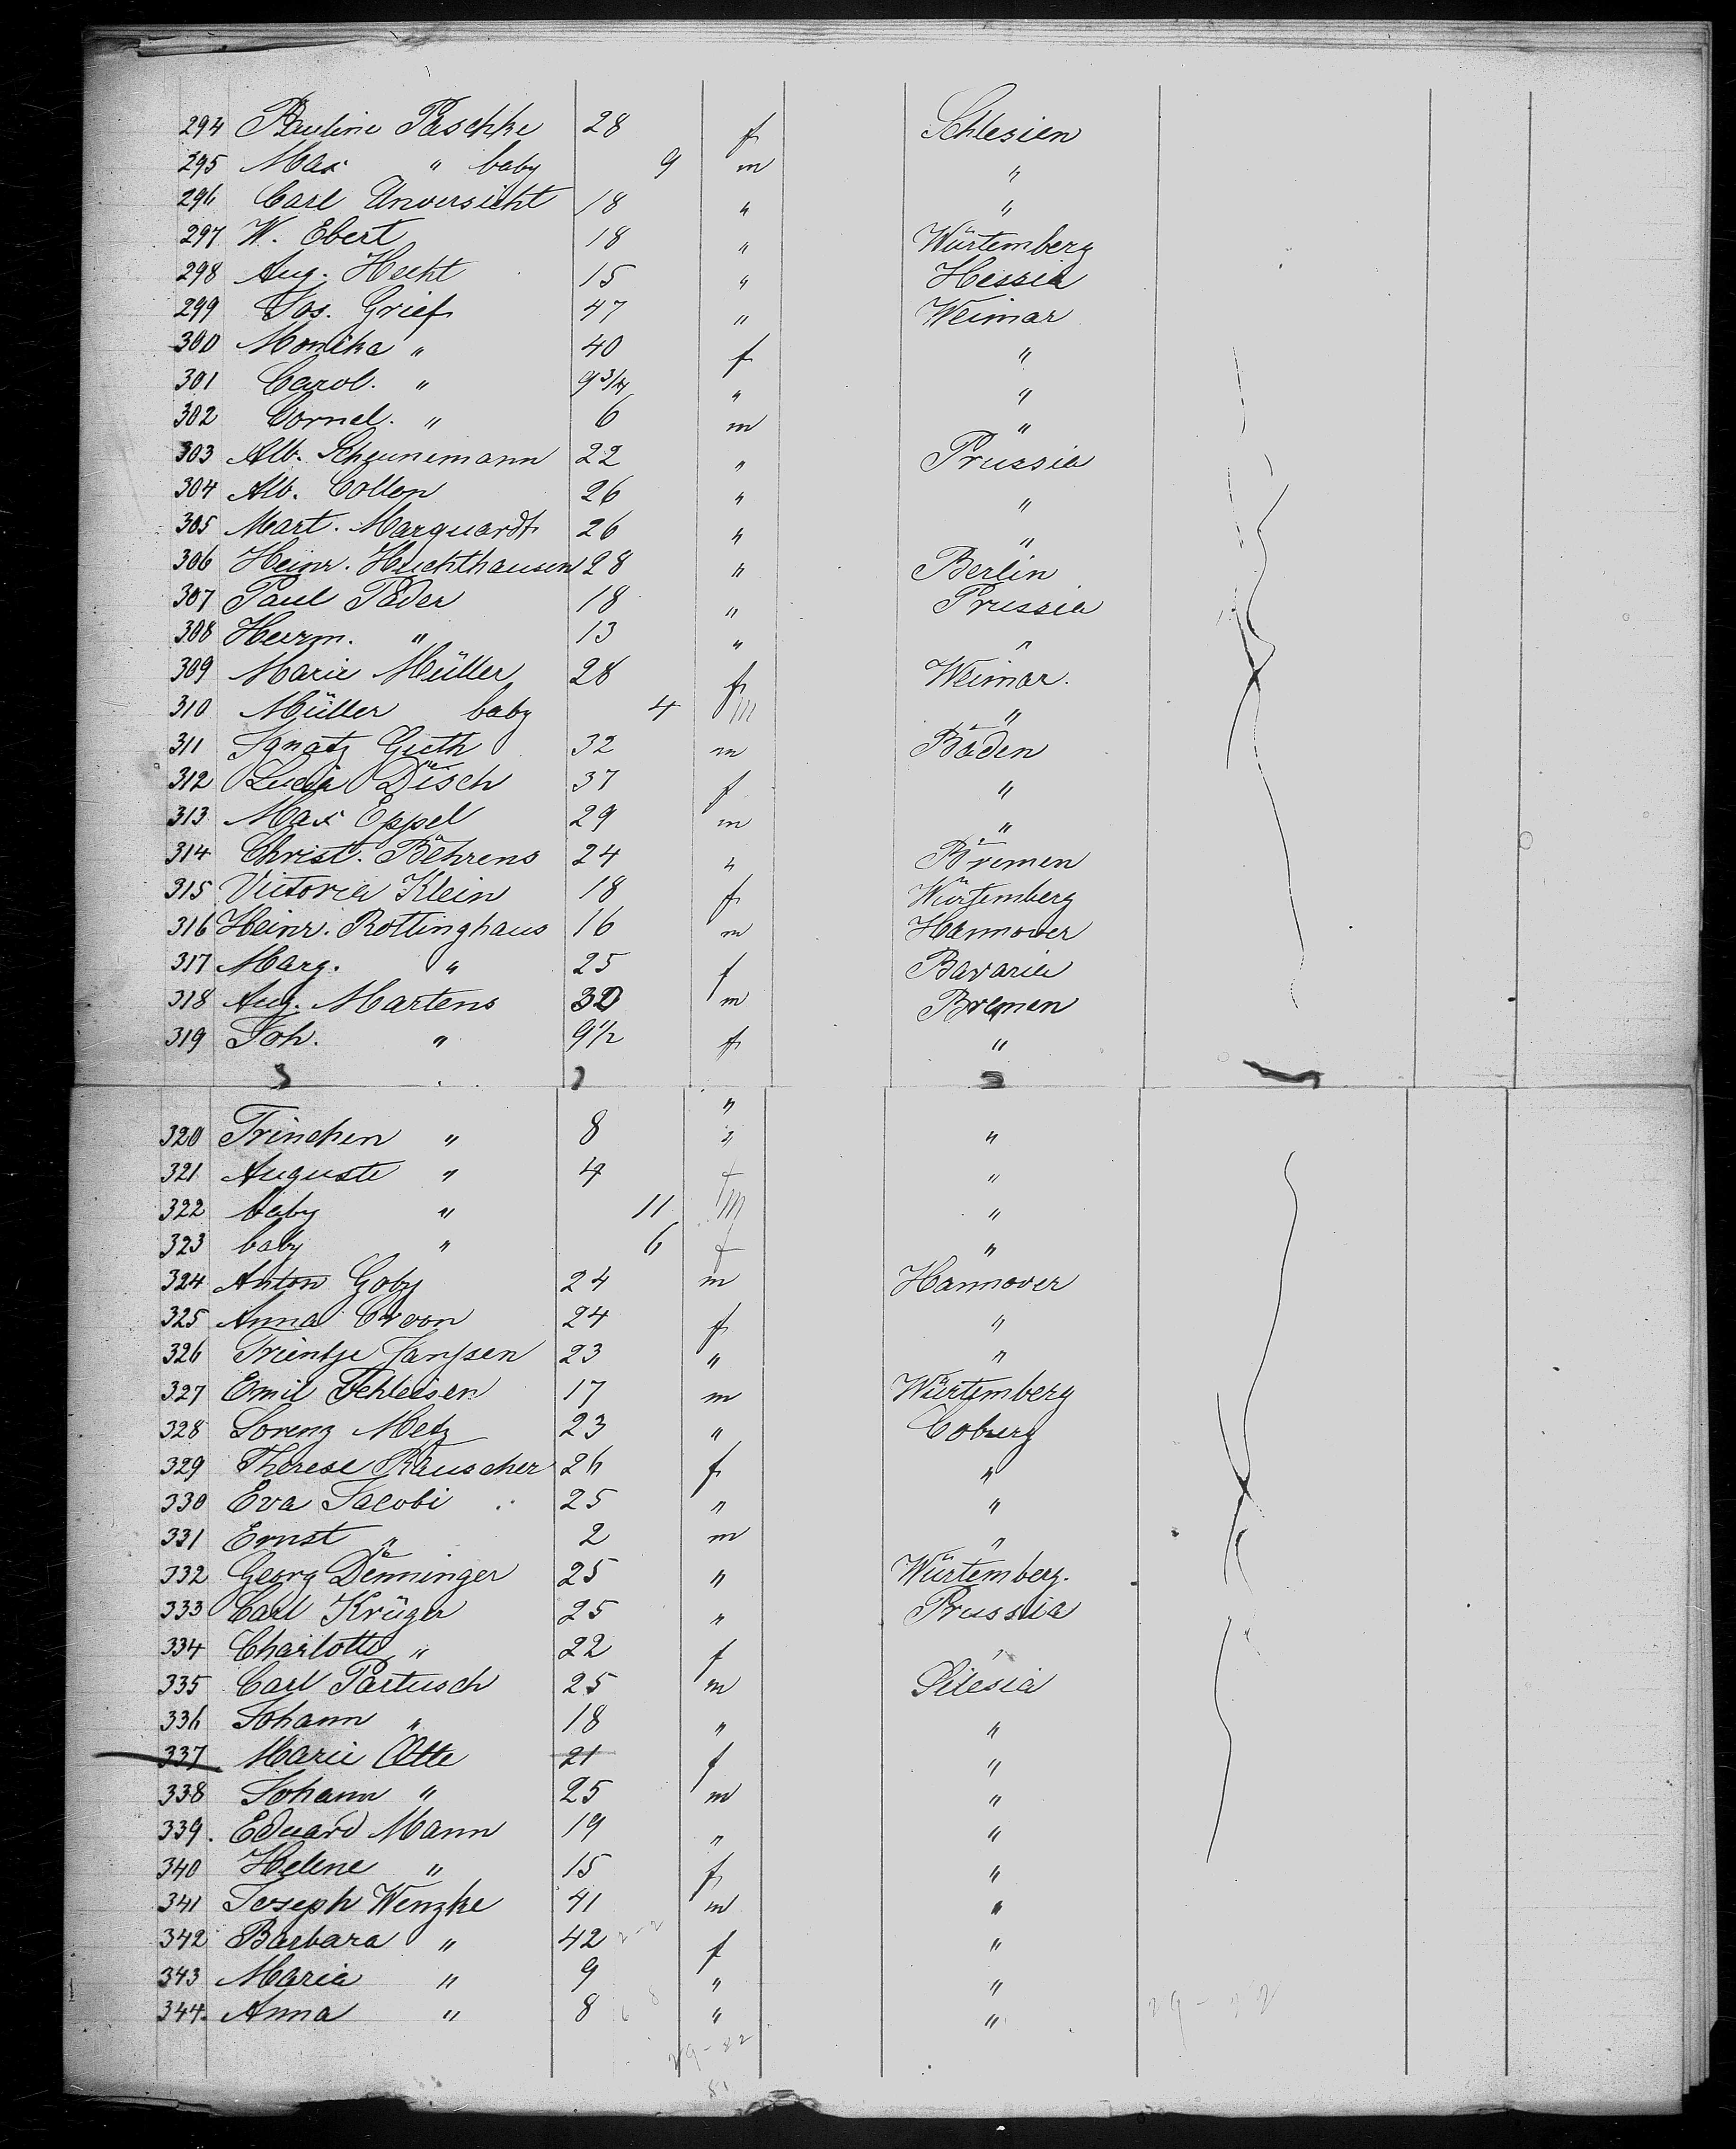 294 Pauline Paschke 28 f Schlesien
295 Max " baby 9 m "
296 Carl Unversicht 18 " "
297 W. Ebert 18 " Würtemberg
298 Aug. Hecht 15 " Hessia
299 Jos. Grief 47 " Weimar
300 Monika " 40 f "
301 Carol. " 9 3/4 " "
302 Cornel. " 6 m "
303 Alb. Scheunemann 22 " Prussia
304 Alb. Collon 26 " "
305 Mart. Marquardt 26 " "
306 Heinr. Huchthausen 28 " Berlin
307 Paul Päder 18 " Prussia
308 Herrm. " 13 " "
309 Marie Müller 28 f Weimar.
310 Müller baby 4 m "
311 Ignatz Guth 32 m Baden
312 Lucia Disch 37 f "
313 Max Eppel 29 m "
314 Christ. Behrens 24 " Bremen
315 Victoria Klein 18 f Würtemberg
316 Heinr. Rottinghaus 16 m Hannover
317 Marg. " 25 f Bavaria
318 Aug. Martens 30 m Bremen
319 Joh. " 9 1/2 f "
320 Trinchen " 8 " "
321 Auguste " 4 f "
322 baby " 11 m "
323 baby " 6 f "
324 Anton Goby 24 m Hannover
325 Anna Croon 24 f "
326 Trientje Janssen 23 " "
327 Emil Fehleisen 17 m Würtemberg
328 Lorenz Metz 23 " Coburg
329 Therese Rauscher 26 f "
330 Eva Jacobi 25 " "
331 Ernst " 2 m "
332 Georg Denninger 25 " Würtemberg.
333 Carl Krüger 25 " Prussia
334 Charlotte " 22 f "
335 Carl Partusch 25 m Silesia
336 Johann " 18 " "
337 Marie Otte 21 f "
338 Johann " 25 m "
339. Eduard Mann 19 " "
340 Helene " 15 f "
341 Joseph Wenzke 41 m "
342 Barbara " 42 f "
343 Maria " 9 " "
344. Anna " 8 " "